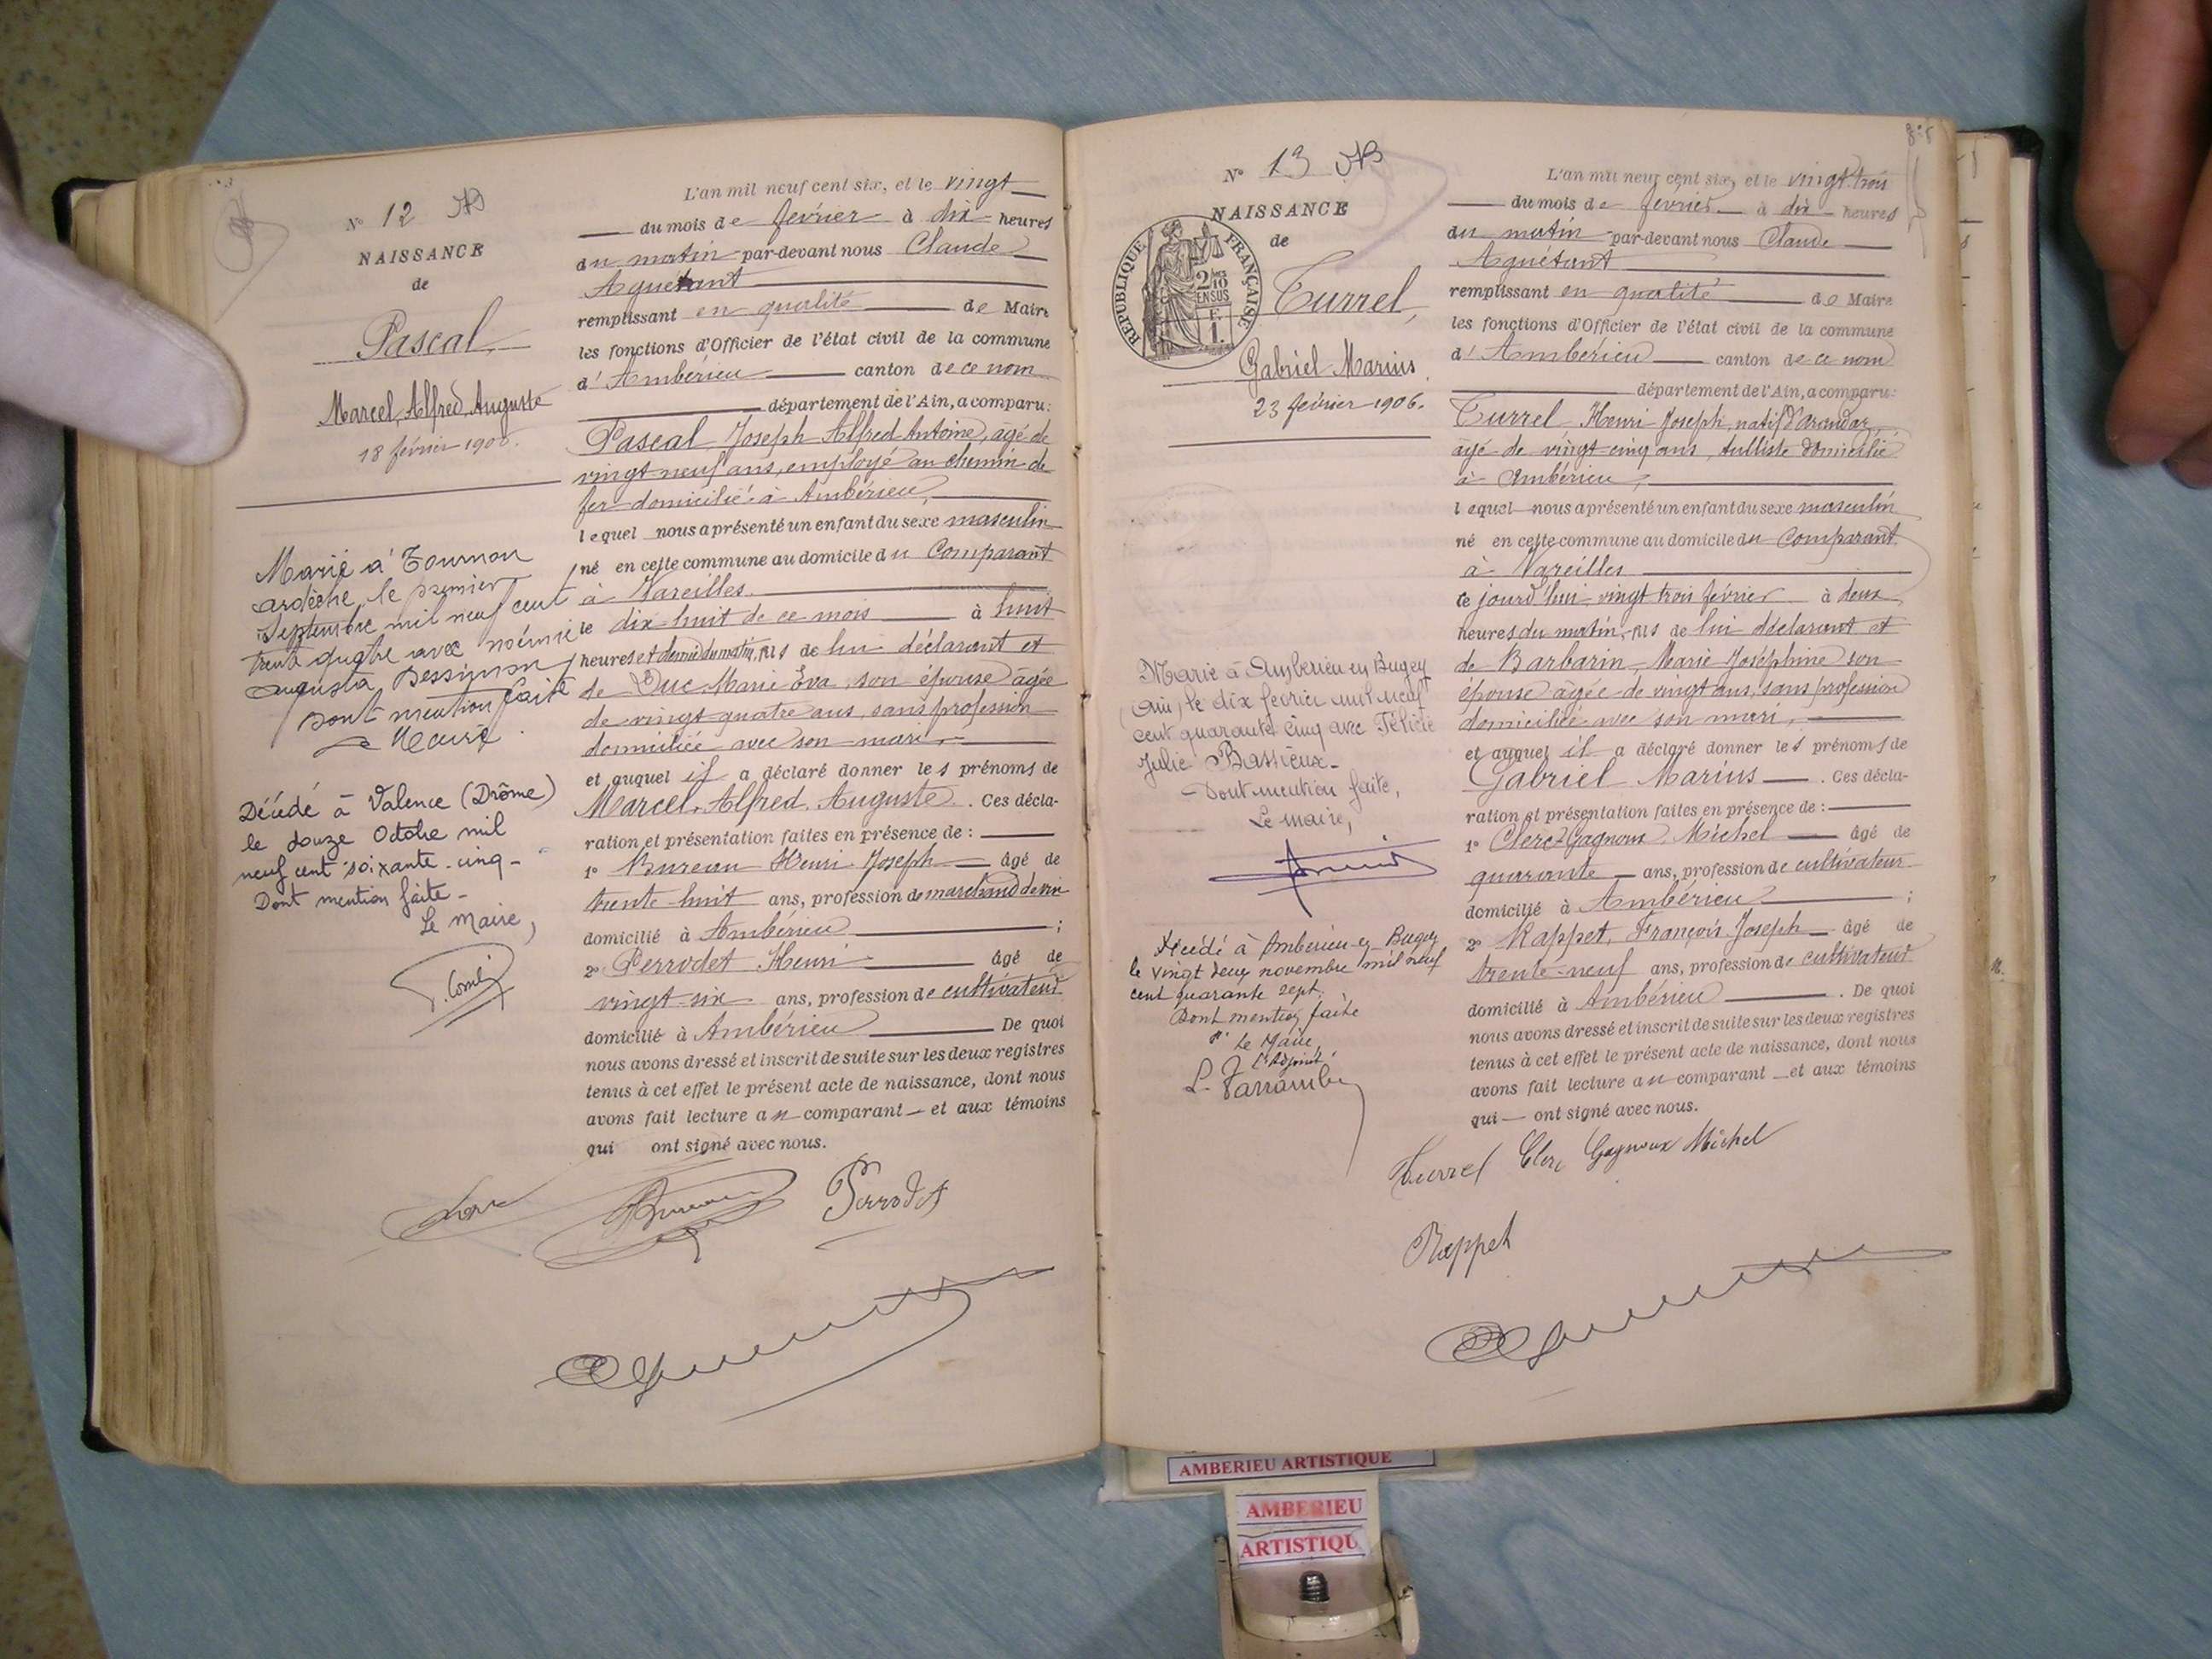 N° 12
NAISSANCE
de
Pascal,
Marcel, Alfred, Auguste
18 février 1906.
Marié à Tournon
ardèche, le premier
septembre mil neuf cent
trente quatre avec noémie
augusta Dessimon
dont mention faite
Décédé à Valence (Drôme)
le douze Octobre mil
neuf cent soixante-cinq-
Dont mention faite-
Le Maire,
L'an mil neuf cent six, et le vingt
du mois de février à dix heures
du matin par-devant nous Claude
Aguétant
remplissant en qualité de Maire
les fonctions d'Officier de l'état civil de la commune
d'Ambérieu canton de ce nom
département de l'Ain, a comparu:
Pascal Joseph Alfred Antoine, âgé de
vingt-neuf ans, employé au chemin de
fer domicilié à Ambérieu,
lequel nous a présenté un enfant du sexe masculin
né en cette commune au domicile du Comparant
à Vareilles
le dix huit de ce mois à huit
heures et demie du matin, fils de lui déclarant et
de Duc Marie Eva, son épouse âgée
de vingt-quatre ans, sans profession
domiciliée avec son mari,
et auquel il a déclaré donner les prénoms de
Marcel, Alfred, Auguste. Ces décla-
ration et présentation faites en présence de :
1° Bureau Henri Joseph âgé de
trente-huit ans, profession de marchand de vin
domicilié à Ambérieu ;
2° Perrodet Henri âgé de
vingt-six ans, profession de cultivateur
domicilié à Ambérieu De quoi
nous avons dressé et inscrit de suite sur les deux registres
tenus à cet effet le présent acte de naissance, dont nous
avons fait lecture au comparant et aux témoins
qui ont signé avec nous.
Perrodet
N° 13
NAISSANCE
de
RÉPUBLIQUE FRANÇAISE
2/10
EN SUS
F.
1.
Turrel,
Gabriel Marius
23 février 1906.
Marié à Ambérieu en Bugey
(Ain) le dix février mil neuf
cent quarante cinq avec Félicie
Julie Bassieux-
Dont mention faite,
Le maire,
Décédé à Ambérieu-en-Bugey
le vingt deux novembre mil neuf
cent quarante sept.
Dont mention faite
Pr Le Maire,
L'Adjoint
L'an mil neuf cent six, et le vingt trois
du mois de février à dix heures
du matin par-devant nous Claude
Aguétant
remplissant en qualité de Maire
les fonctions d'Officier de l'état civil de la commune
d'Ambérieu canton de ce nom
département de l'Ain, a comparu:
Turrel Henri Joseph, natif d'Arandas,
âgé de vingt-cinq ans, tulliste domicilié
à Ambérieu,
lequel nous a présenté un enfant du sexe masculin
né en cette commune au domicile du Comparant
à Vareilles
ce jourd'hui vingt trois février à deux
heures du matin, fils de lui déclarant et
de Barbarin, Marie Joséphine son
épouse âgée de vingt ans, sans profession
domiciliée avec son mari,
et auquel il a déclaré donner les prénoms de
Gabriel Marius. Ces décla-
ration et présentation faites en présence de :
1° Clerc-Gagnoux, Michel âgé de
quarante ans, profession de cultivateur
domicilié à Ambérieu ;
2° Rappet, François Joseph âgé de
trente-neuf ans, profession de cultivateur
domicilié à Ambérieu . De quoi
nous avons dressé et inscrit de suite sur les deux registres
tenus à cet effet le présent acte de naissance, dont nous
avons fait lecture au comparant et aux témoins
qui ont signé avec nous.
Turrel Clerc Gagnoux Michel
Rappet
AMBERIEU ARTISTIQUE
AMBERIEU
ARTISTIQU